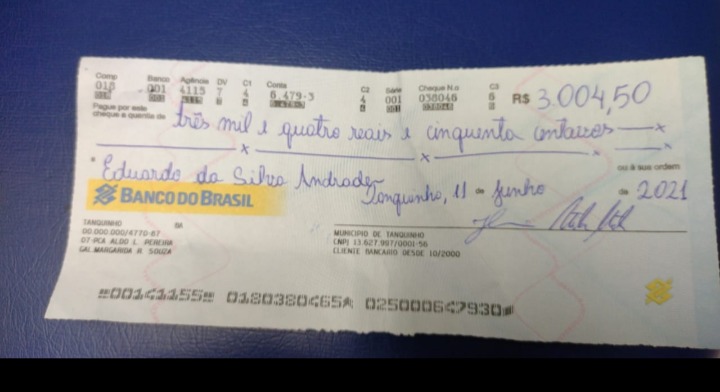 Comp Banco Agência DV C1 Conta C2 Série Cheque N.o C3
018 001 4115 7 4 6.479-3 4 001 038046 6 R$ 3.004,50
Pague por este
cheque a quantia de três mil e quatro reais e cinquenta centavos
a Eduardo da Silva Andrade ou à sua ordem
Tanquinho, 11 de Junho de 2021
BANCO DO BRASIL
TANQUINHO BA
00.000.000/4770-87
07-PCA ALDO L. PEREIRA
GAL MARGARIDA R. SOUZA
MUNICIPIO DE TANQUINHO
CNPJ 13.627.997/0001-56
CLIENTE BANCARIO DESDE 10/2000
00141155 0180380465 025000647930